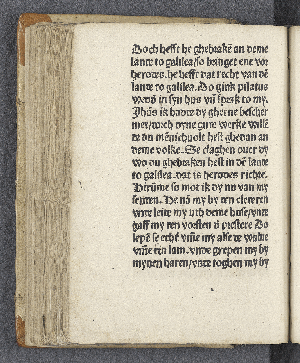 Doch hefft he ghebrakē an deme
lande to galilea/so banget ene vor
herodes. he hefft dat recht van dē
lande to galilea. Do gink pilatus
wedd in syn hus vñ sprak to my.
Jhūs ik hadde dy gherne beschermer/doch dyne gude werke wille
de du mēnichvolt hest ghedan an
deme volke. Se claghen ouer dy
wo du ghebrakēn hest in dē lande
to galilea. dat is herodes richte.
Hirūme so mot ik dy nu van my
senden. He nā my by den clederen
vnde leide my vth deme huse/vnde
gaff my den vorsten vñ prestere Do
lepē se echt vm̄e my alse de wulue
vm̄e een lam. vnde grepen my by
mynen haren/vnde toghen my by